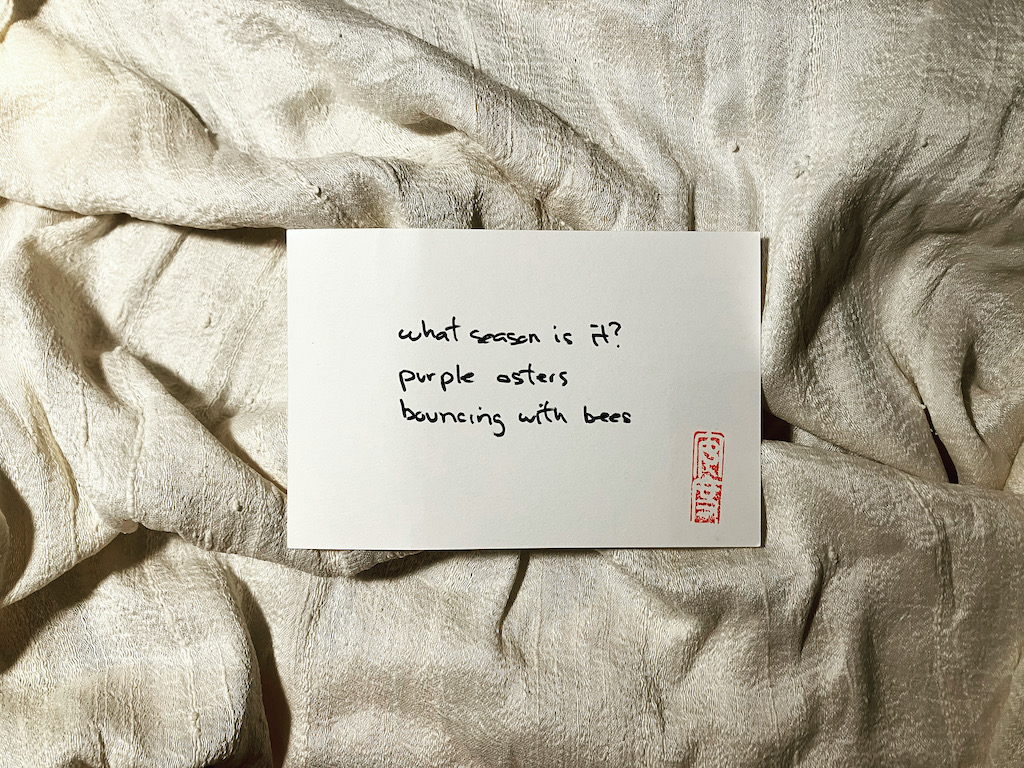 what season is it?
purple asters
bouncing with bees